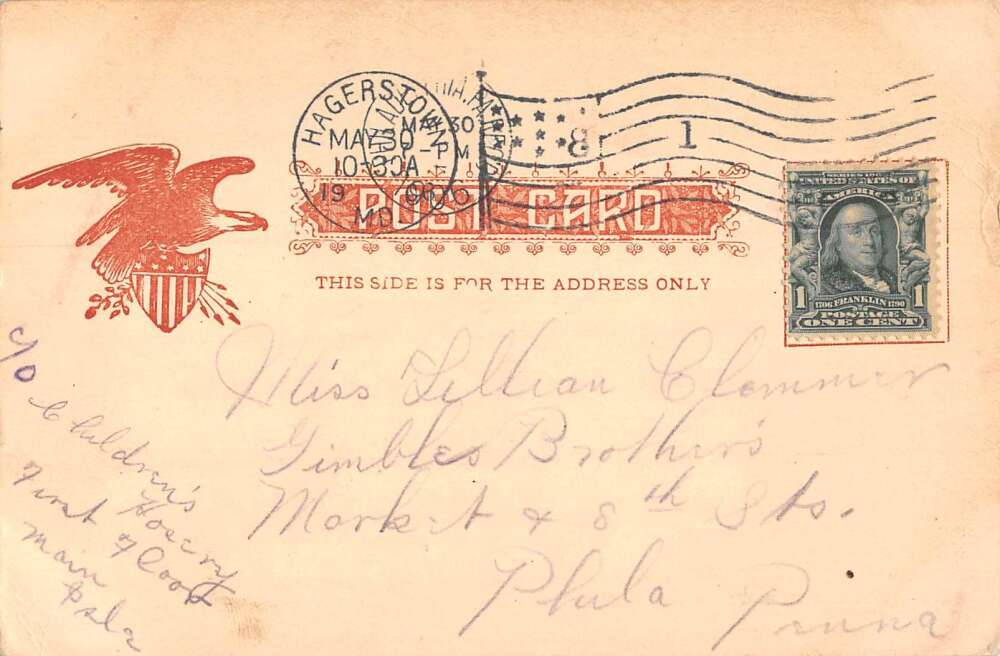 HAGERSTOWN
MAY 30
10-30A
19 06
MD.
MAY 30
PM
8 1
POST CARD
THIS SIDE IS FOR THE ADDRESS ONLY
UNITED STATES OF
AMERICA
1 1
1706 FRANKLIN 1790
POSTAGE
ONE CENT
Miss Lillian Clemmer
Gimbles Brother's
Market & 8th Sts.
Phila Penna
c/o Children's
Hosery
First Floor
Main